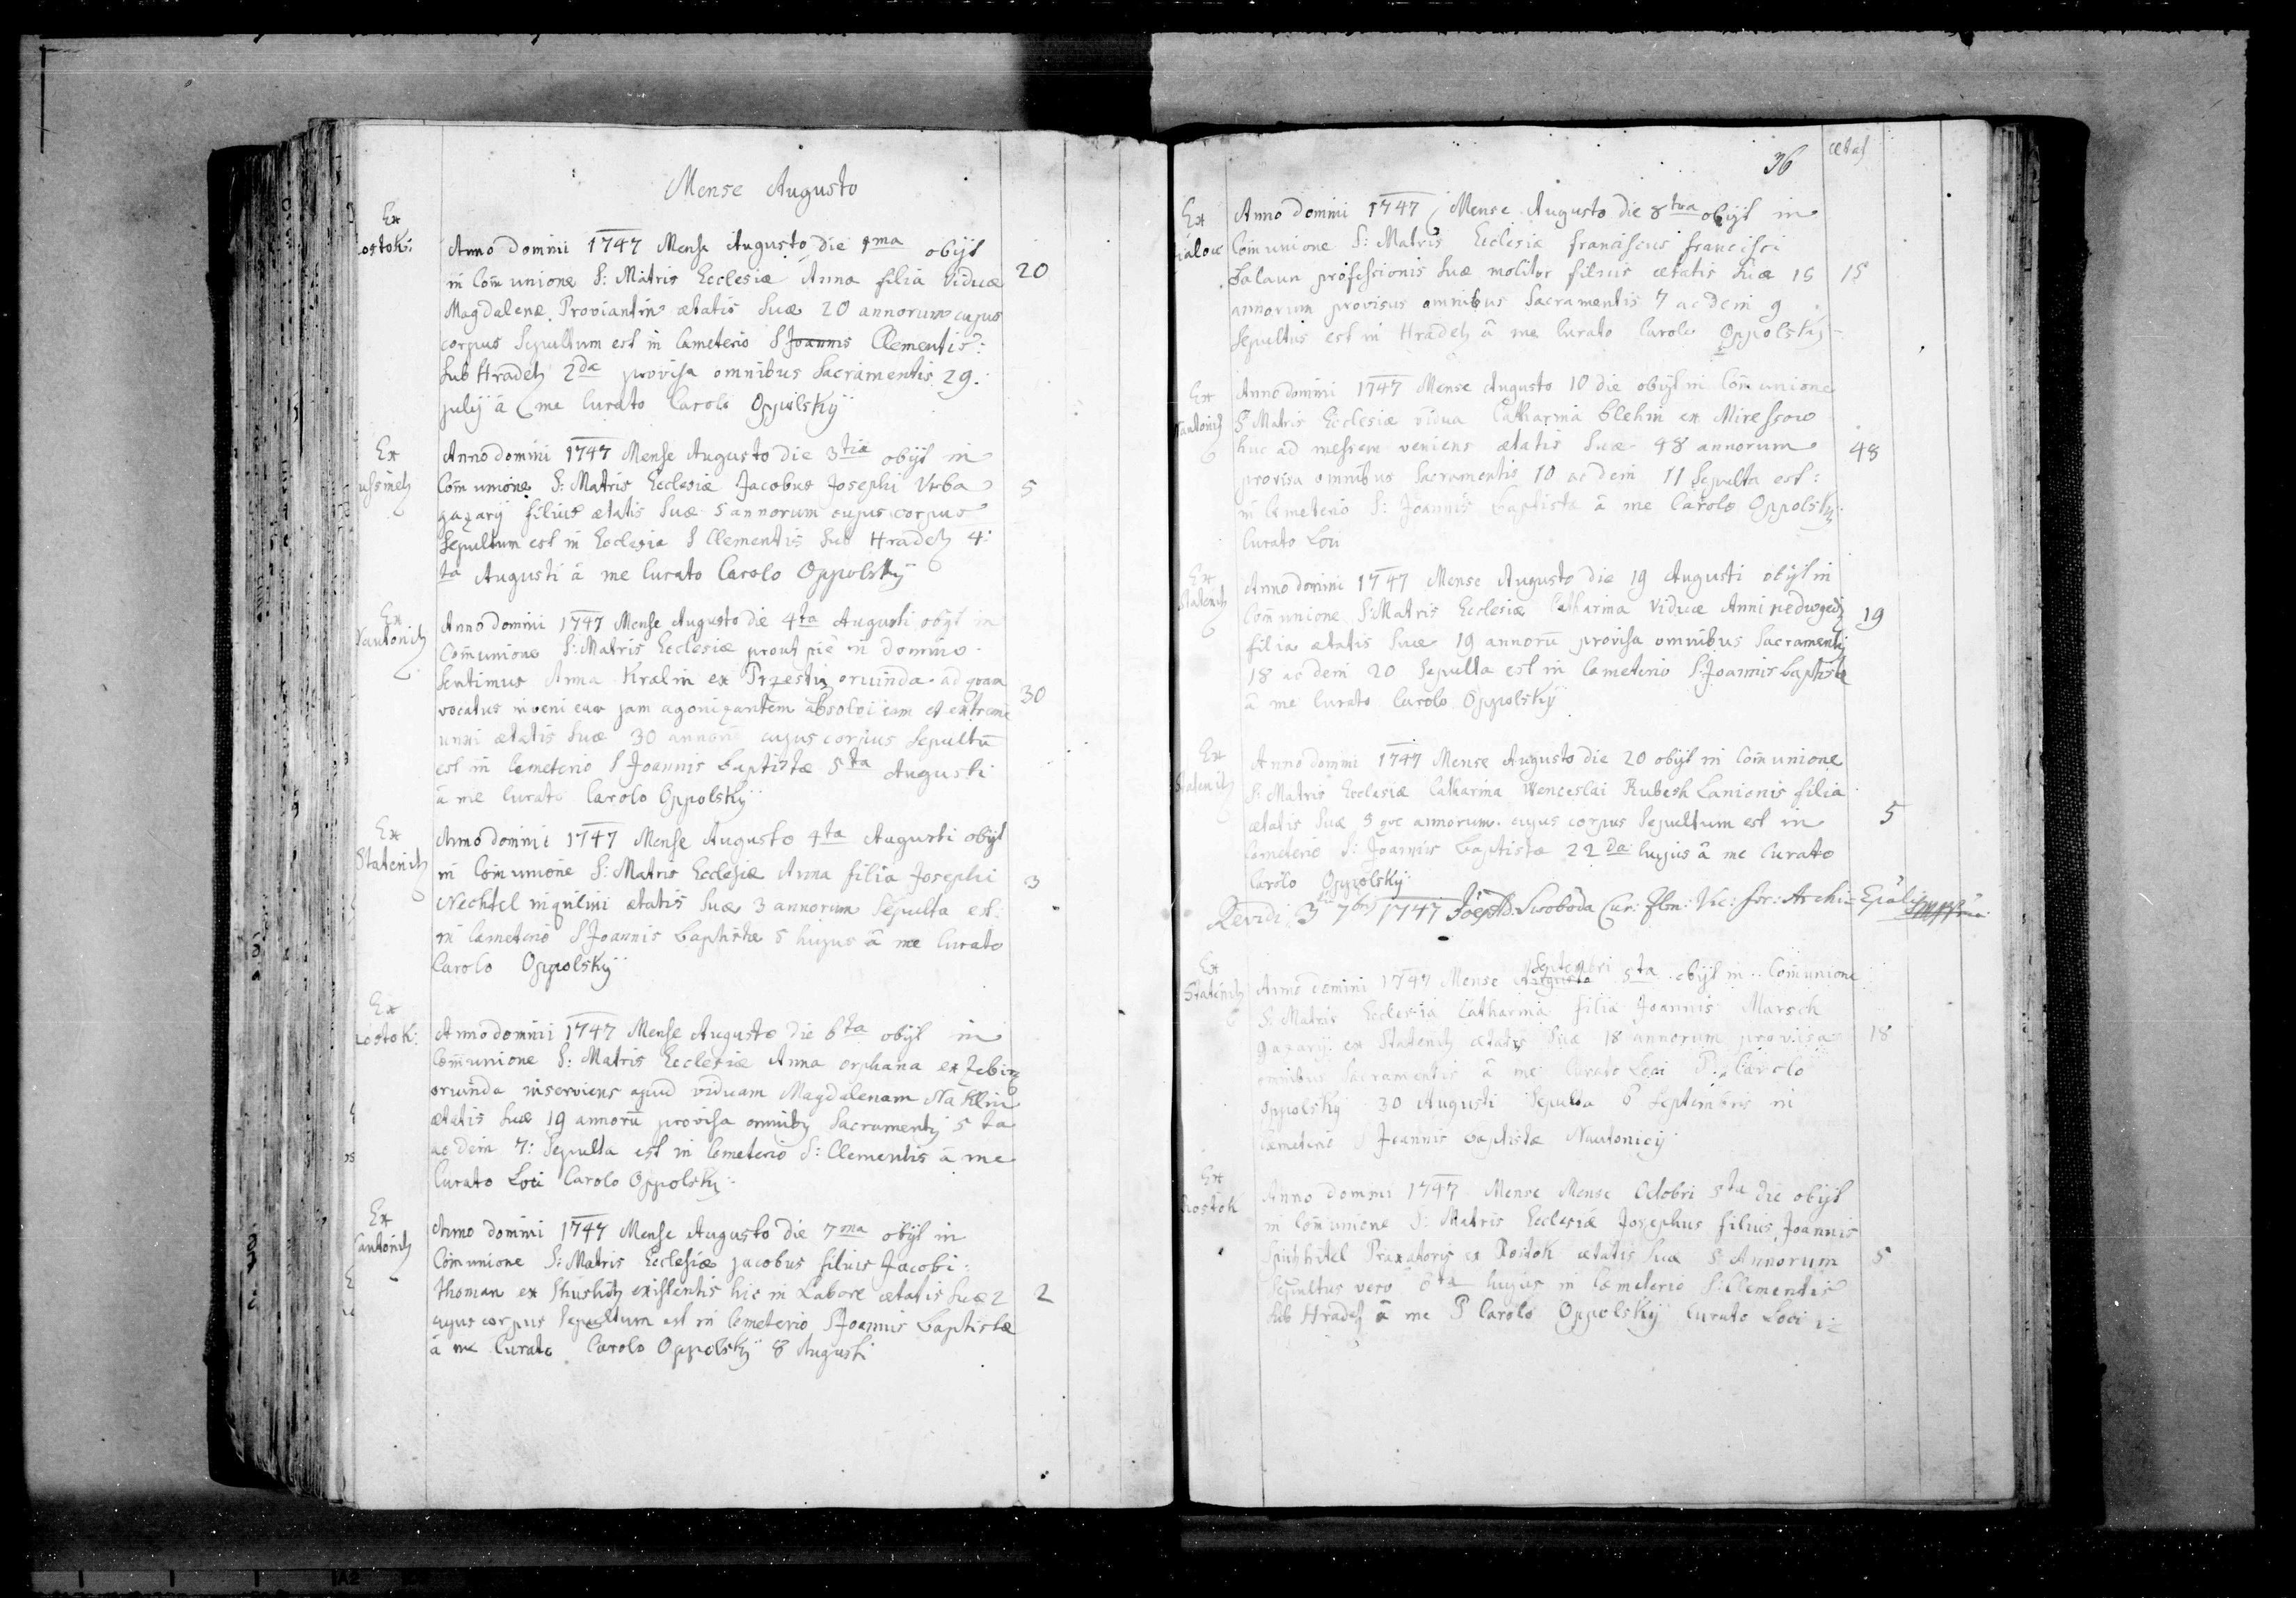 Mense Augusto
Ex
ostok:
Anno domini 1747 Mense Augusto die 1ma obijt
in Com̄unione S: Matris Ecclesiæ Anna filia Viduæ
20
Magdalenæ Proviantin ætatis suæ 20 annorum cujus
corpus Sepultum est in Cæmeterio S Joannis Clementis:
sub Hradetz 2da provisa omnibus Sacramentis 29.
julij â me Curato Carolo Oppolskÿ
Ex
Anno domini 1747 Mense Augusto die 3tia obijt in
Com̄unione S: Matris Ecclesiæ Jacobus Josephi Vrba
5
gazarij filius ætatis suæ 5 annorum cujus corpus
Sepultum est in Ecclesia S Clementis sub Hradetz 4:
ta Augusti â me Curato Carolo Oppolskÿ
Ex
Nautonitz
Anno domini 1747 Mense Augusto die 4ta Augusti obijt in
Com̄unione S: Matris Ecclesiæ prout pie in domino
sentimus Anna Kralin ex oriunda ad quam
30
vocatus inveni eam jam agonizantem absolvi eam et extreme
unxi ætatis suæ 30 annorū cujus corpus Sepultū
est in Cemeterio S Joannis Baptistæ 5ta Augusti
â me Curato Carolo Oppolskÿ
Ex
Statenitz
Anno domini 1747 Mense Augusto 4ta Augusti obijt
in Com̄unione S: Matris Ecclesiæ Anna filia Josephi
3
Nechtel inquilini ætatis suæ 3 annorum Sepulta est:
in Cæmeterio S Joannis Baptistæ 5 hujus â me Curato
Carolo Oppolskÿ
Ex
ostok:
Anno domini 1747 Mense Augusto die 6ta obijt in
Com̄unione S: Matris Ecclesiæ Anna orphana ex
oriunda inserviens apud viduam Magdalenam
ætatis suæ 19 annorū provisa omnibq Sacramentis 5ta
ac dein 7: Sepulta est in Cemeterio S: Clementis â me
Curato Loci Carolo Oppolskÿ
Ex
autonitz
Anno domini 1747 Mense Augusto die 7ma obijt in
Com̄unione S: Matris Ecclesiæ jacobus filius Jacobi:
Thoman ex existentis hic in Labore ætatis suæ 2
2
cujus corpus Sepultum est in Cemeterio S Joannis Baptistæ
â me Curato Carolo Oppolskÿ 8 Augusti
36
ætas
Ex
Anno domini 1747 Mense Augusto die 8tva obijt in
Com̄unione S: Matris Ecclesiæ franciscus francisci
Balaun professionis suæ molitor filius ætatis suæ 15
15
annorum provisus omnibus Sacramentis 7 ac dein 9
Sepultus est in Hradetz â me Curato Carolo Oppolskÿ
Ex
autonitz
Anno domini 1747 Mense Augusto 10 die obijt in Com̄unione
S Matris Ecclesiæ vidua Catharina Blehin ex
huc ad messem veniens ætatis suæ 48 annorum
48
provisa omnibus Sacramentis 10 ac dein 11 Sepulta est:
in Cemeterio S: Joannis Baptistæ â me Carolo Oppolskÿ
Curato Loci
Ex
Statenitz
Anno domini 1747 Mense Augusto die 19 Augusti obijt in
Com̄unione S: Matris Ecclesiæ Catharina Viduæ
19
filia ætatis suæ 19 annorū provisa omnibus Sacramentis
18 ac dein 20 Sepulta est in Cæmeterio S: Joannis Baptistæ
â me Curato Carolo Oppolskÿ
Ex
Statenitz
Anno domini 1747 Mense Augusto die 20 obijt in Com̄unione
S: Matris Ecclesiæ Catharina Wenceslai Rubesh Lanionis filia
5
ætatis suæ 5 annorum cujus corpus Sepultum est in
Cæmeterio S: Joannis Baptistæ 22da hujus â me Curato
Carolo Oppolskÿ
Revidi 3 7bris 1747 Swoboda Cur: Vic: for: Archi-Epälis
Ex
Statenitz
Anno domini 1747 Mense Augusto Septembri 5ta obijt in Com̄unione
S: Matris Ecclesiæ Catharina filia Joannis Marsch
gazarij ex Statenitz ætatis suæ 18 annorum provisa
18
omnibus Sacramentis â me Curato Loci P: Carolo
Oppolskÿ 30 Augusti Sepulta 6 Septembris in
Cæmeterio S Joannis Baptistæ Nautonicij
Ex
Rostok
Anno domini 1747 Mense Mense Octobri 5ta die obijt
in Com̄unione S: Matris Ecclesiæ Josephus filius Joannis
ex Rostok ætatis suæ 5 Annorum
5
Sepultus vero 6ta hujus in Cæmeterio S: Clementis
sub Hradetz â me P Carolo Oppolskÿ Curato Loci